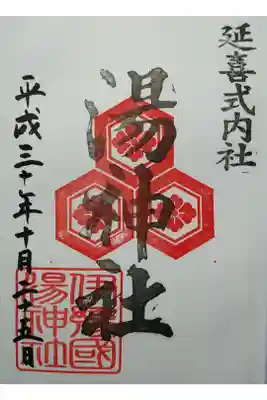 延喜式内社
湯神社
平成三十年十月二十五日
伊豫國
湯神社